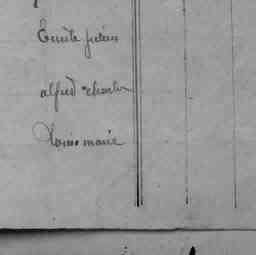 Emile julien
alfred charles
Louis marie